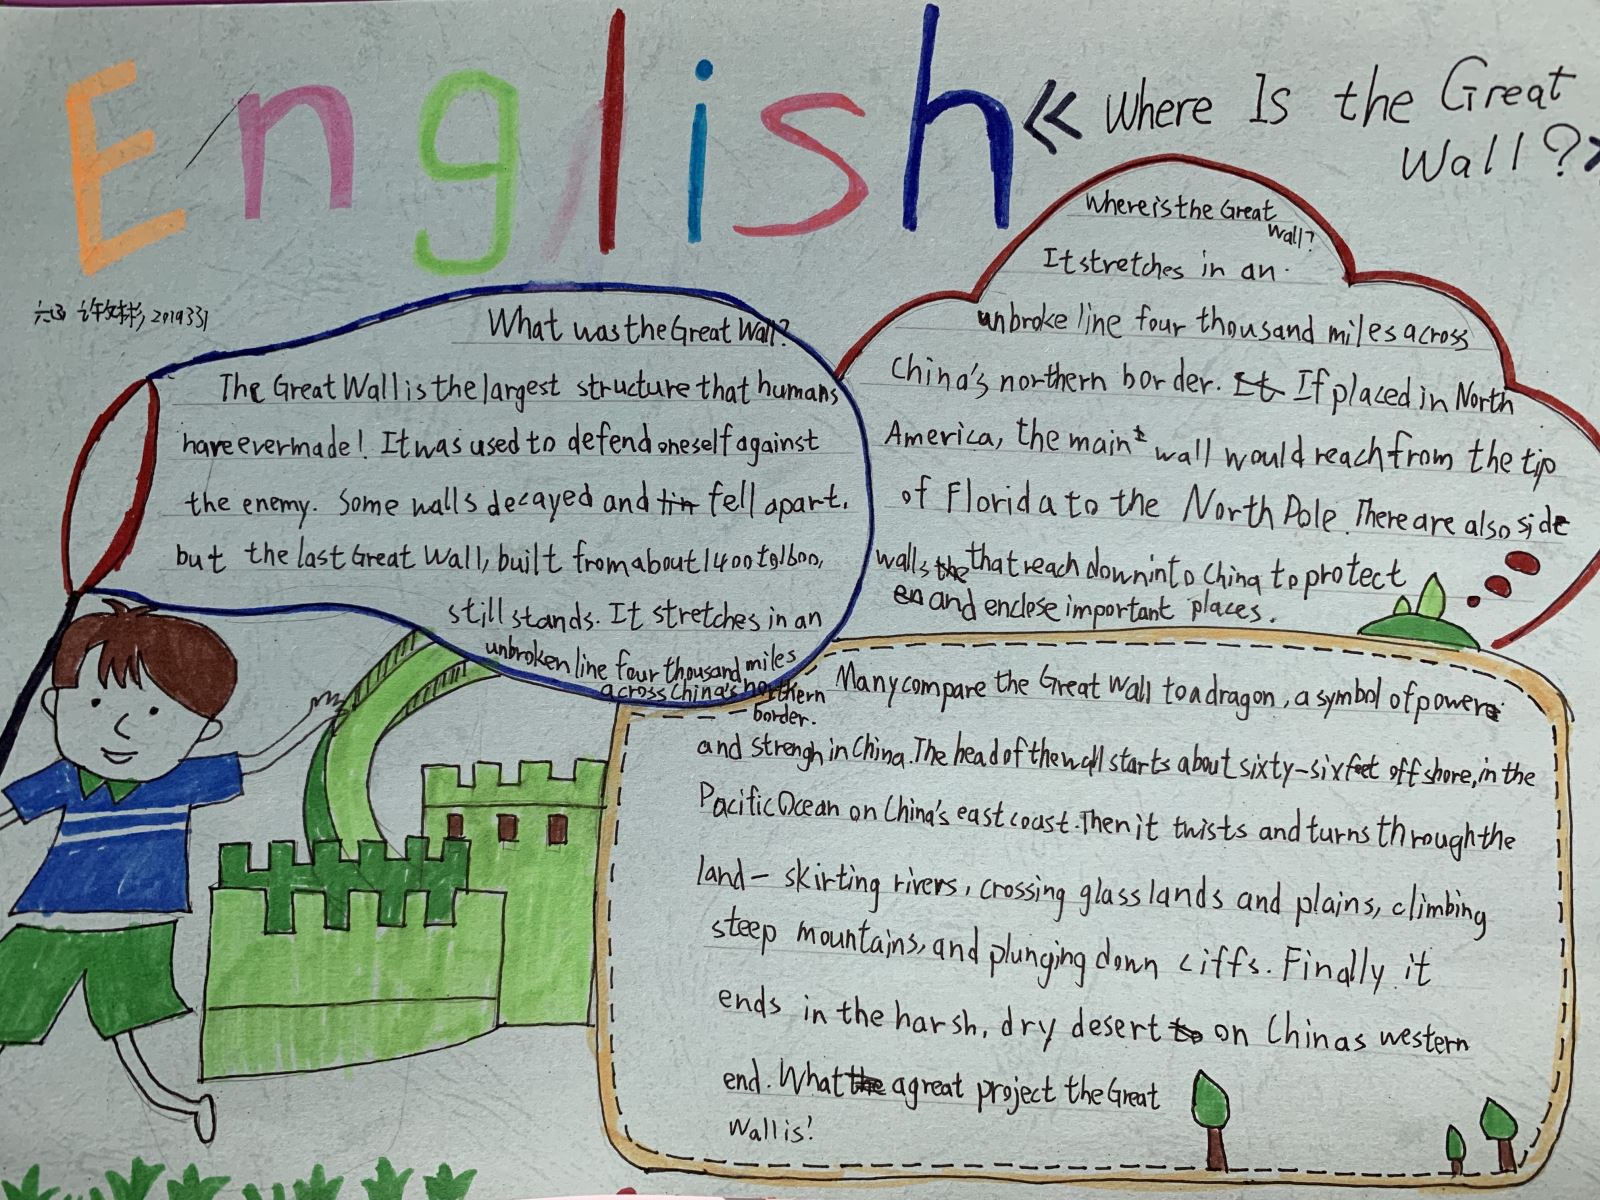 English
《Where Is the Great
Wall?》
2019331
What was the Great Wall?
The Great Wall is the largest structure that humans
have ever made! It was used to defend oneself against
the enemy. Some walls decayed and fell apart.
but the last Great Wall, built from about 1400 to 1600,
still stands. It stretches in an
unbroken line four thousand miles
across China's northern
border.
Where is the Great
Wall?
It stretches in an
unbroke line four thousand miles across
China's northern border. It If placed in North
America, the main wall would reach from the tip
of Florida to the North Pole. There are also side
walls the that reach down into China to protect
en and enclese important places.
Many compare the Great Wall to a dragon, a symbol of power
and strengh in China. The head of the wall starts about sixty-six feet off shore, in the
Pacific Ocean on China's east coast. Then it twists and turns through the
land— skirting rivers, crossing glasslands and plains, climbing
steep mountains, and plunging down ciffs. Finally it
ends in the harsh, dry desert to on Chinas western
end. What the a great project the Great
Wall is!